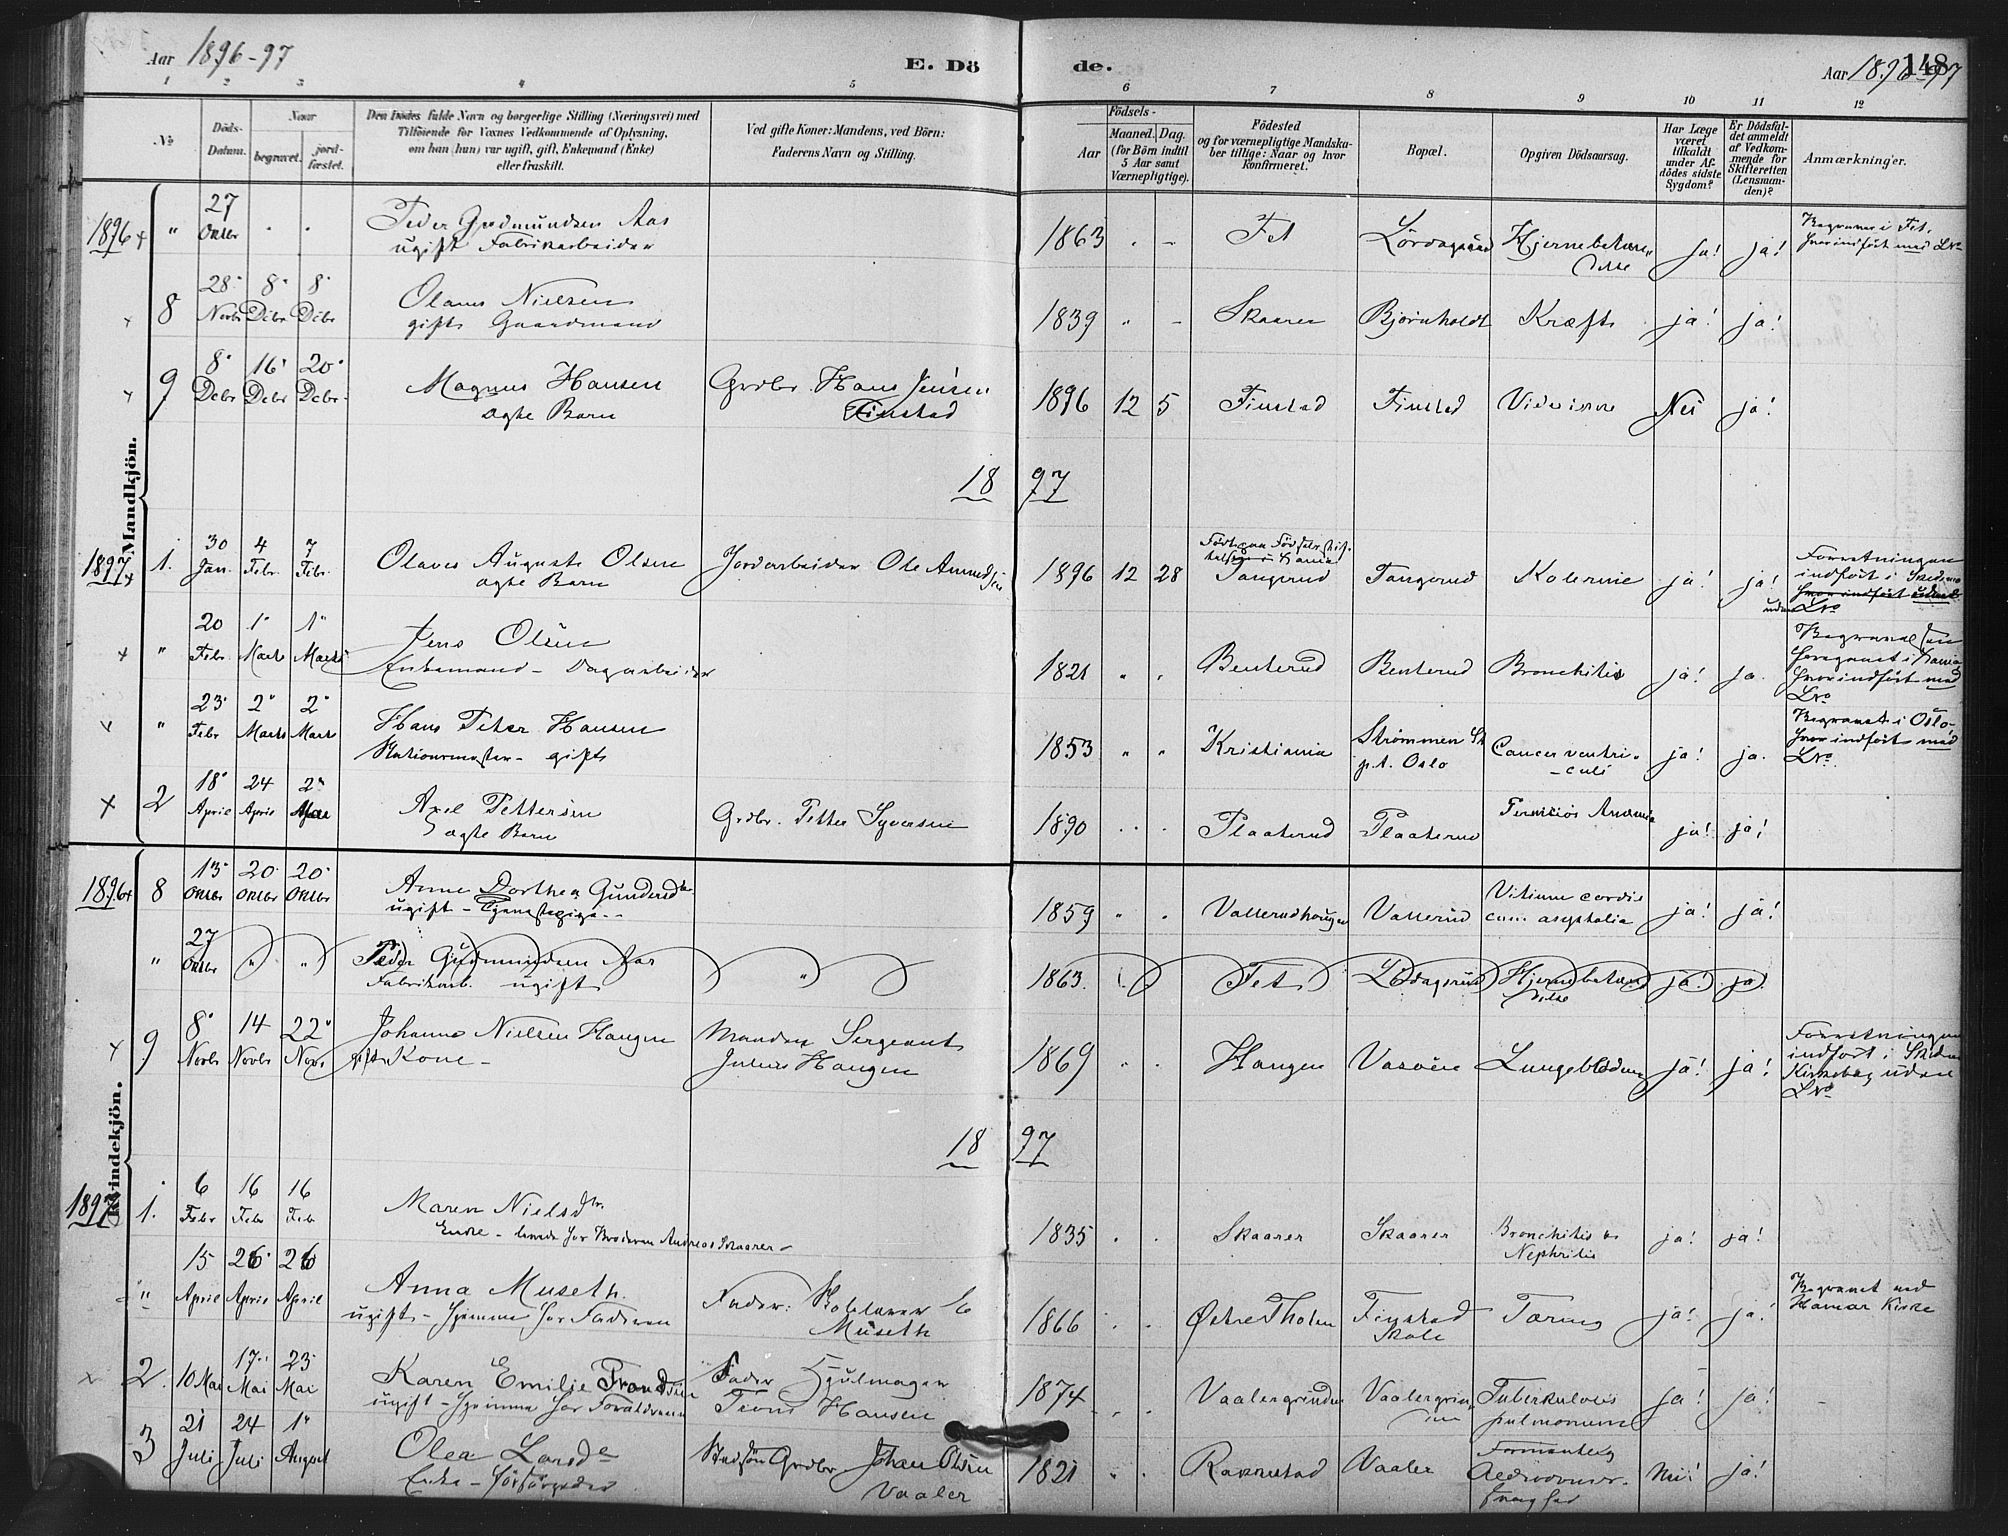 Aar 1896-97
E. Dö
de.
Aar 1896-97
148
1 2 3 4 5 6 7 8 9 10 11 12
No
Döds-
Datum.
Naar
begravet.
jord-
fæstet.
Den Dödes fulde Navn og borgerlige Stilling (Næringsvei) med
Tilföiende for Voxnes Vedkommende af Oplysning,
om han (hun) var ugift, gift, Enkemand (Enke)
eller fraskilt.
Ved gifte Koner: Mandens, ved Börn:
Faderens Navn og Stilling.
Födsels-
Aar
Maaned. Dag.
(for Börn indtil
5 Aar samt
Værnepligtige).
Födested
og for værnepligtige Mandska-
ber tillige: Naar og hvor
konfirmeret.
Bopæl.
Opgiven Dödsaarsag.
Har Læge
været
tilkaldt
under Af-
dödes sidste
Sygdom?
Er Dödsfal-
det anmeldt
af Vedkom-
mende for
Skifteretten
(Lensman-
den)?
Anmærkninger.
Mandkjön.
1896 + " 27 Oktbr Peder Gudmundsen Aas
ugift Fabrikarbeider
1863 Fet Lördagsrud Hjernebetæn-
delse ja! ja!
Begravet i Fet,
hvor indfört med LNo
8 28 Novbr 8 Debr 8 Debr Olaus Nielsen
gift Gaardmand
1839 " " Skaarer Bjørnholdt Kræft ja! ja!
9 8 Debr 16 Debr 20 Debr Magnus Hansen
ægte Barn
Grdbr. Hans Jensen
Finstad
1896 12 5 Finstad Finstad Nei ja!
18 97
1897 + 1. 30 Jan. 4 Febr. 7 Febr. Olaves August Olsen
ægte Barn
Jordarbeider Ole Amundsen
1896 12 28 Födt paa Födselsstif-
telsen i Kania
Tangerud Tangerud Kolerine ja! ja!
Forretningen
indfört i Skedsmo
hvor indfört uden
uden LNo
+ " 20 Febr. 1 Marts 1 Marts Jens Olsen
Enkemand - Dagarbeider
1821 " " Benterud Benterud Bronchitis ja! ja.
Begravet fra
i Kania
hvor indfört med
LNo
" 23 Febr 2 Marts 2 Marts Hans Peter Hansen
Stationsmester - gift
1853 " " Kristiania Strømmen St
p.t. Oslo Cancer ventri-
culi ja! ja.
Begravet i Oslo
hvor indfört med
LNo
+ 2 18 April 24 April 2 Mai Axel Pettersen
ægte Barn
Grdbr. Petter Syversen
1890 Plaaterud Plaaterud Perniciös Anæmie ja! ja!
Kvindekjön.
1896 + 8 13 Oktbr 20 Oktbr 20 Oktbr Anne Dorthea Gundersdtr
ugift - Tjenestepige
1859 " " Vallerudhaugen Vallerud Vitium cordis
cum ja! ja!
" 27 Oktbr " " Peder Gudmundsen Aas
Fabrikarb. ugift
1863 Fet Lördagsrud Hjernebetænd-
delse ja! ja.
9 8 Novbr 14 Novbr 22 Novb Johanne Nielsen Haugen
gift Kone -
Manden Sergeant
Julius Haugen
1869 Haugen Lungeblödning ja! ja!
Forretningen
indfört i Skedsmo
Kirkebog uden
LNo
18 97
1897 1. 6 Febr 16 Febr 16 Feb Maren Nielsdtr.
Enke - levede hos Broderen Andreas Skaarer
1835 Skaarer Skaarer Bronchitis &
Nephritis ja! ja!
" 15 April 26 April 26 April Anna Museth.
ugift - hjemme hos Faderen
Fader: Skolelærer
Museth
1866 Østre Tholen Finstad
Skole Tæring ja! ja!
Begravet ved
Hamar Kirke
2. 10 Mai 17 Mai 23 Mai Karen Emilje Trondsen
ugift - hjemme hos Forældrene
Fader Hjulmager
Trond Hansen
1874 Vaalergrinden Vaalergrin-
den Tuberkulosis
pulmonum ja! ja!
3 21 Juli 24 Juli 1 August Olea Larsdr
Enke - forsörgedes
Stedsön Grdbr Johan Olsen
Vaaler
1821 Raknestad Vaaler Formentlig
Alderdoms-
svaghed Nei! ja!